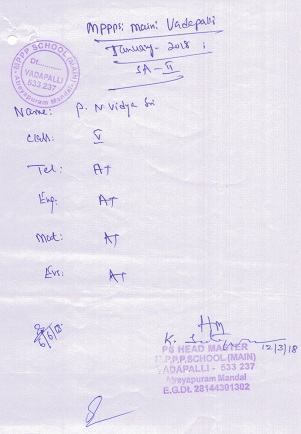 MPPPS: Main: Vadapalli
January - 2018 :
SA - II
M.P.P.P SCHOOL (MAIN)
Dt.......
VADAPALLI
533 237
Atreyapuram Mandal
Name: P. N Vidya Sri
Class: V
Tel: A+
Eng: A+
Mat: A+
Evs: A+
HM
12/3/18
PS HEAD MASTER
M.P.P.P.SCHOOL (MAIN)
VADAPALLI - 533 237
Atreyapuram Mandal
E.G.Dt. 28144301302